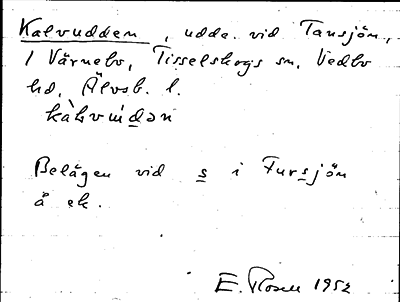 Kalvudden, udde vid Tansjön,
1 Värnebo, Tisselskogs sn, Vedbo
hd, Älvsb. l.
kàlvúdən
Belägen vid s i Fursjön
å ek.
E. Rosell 1952